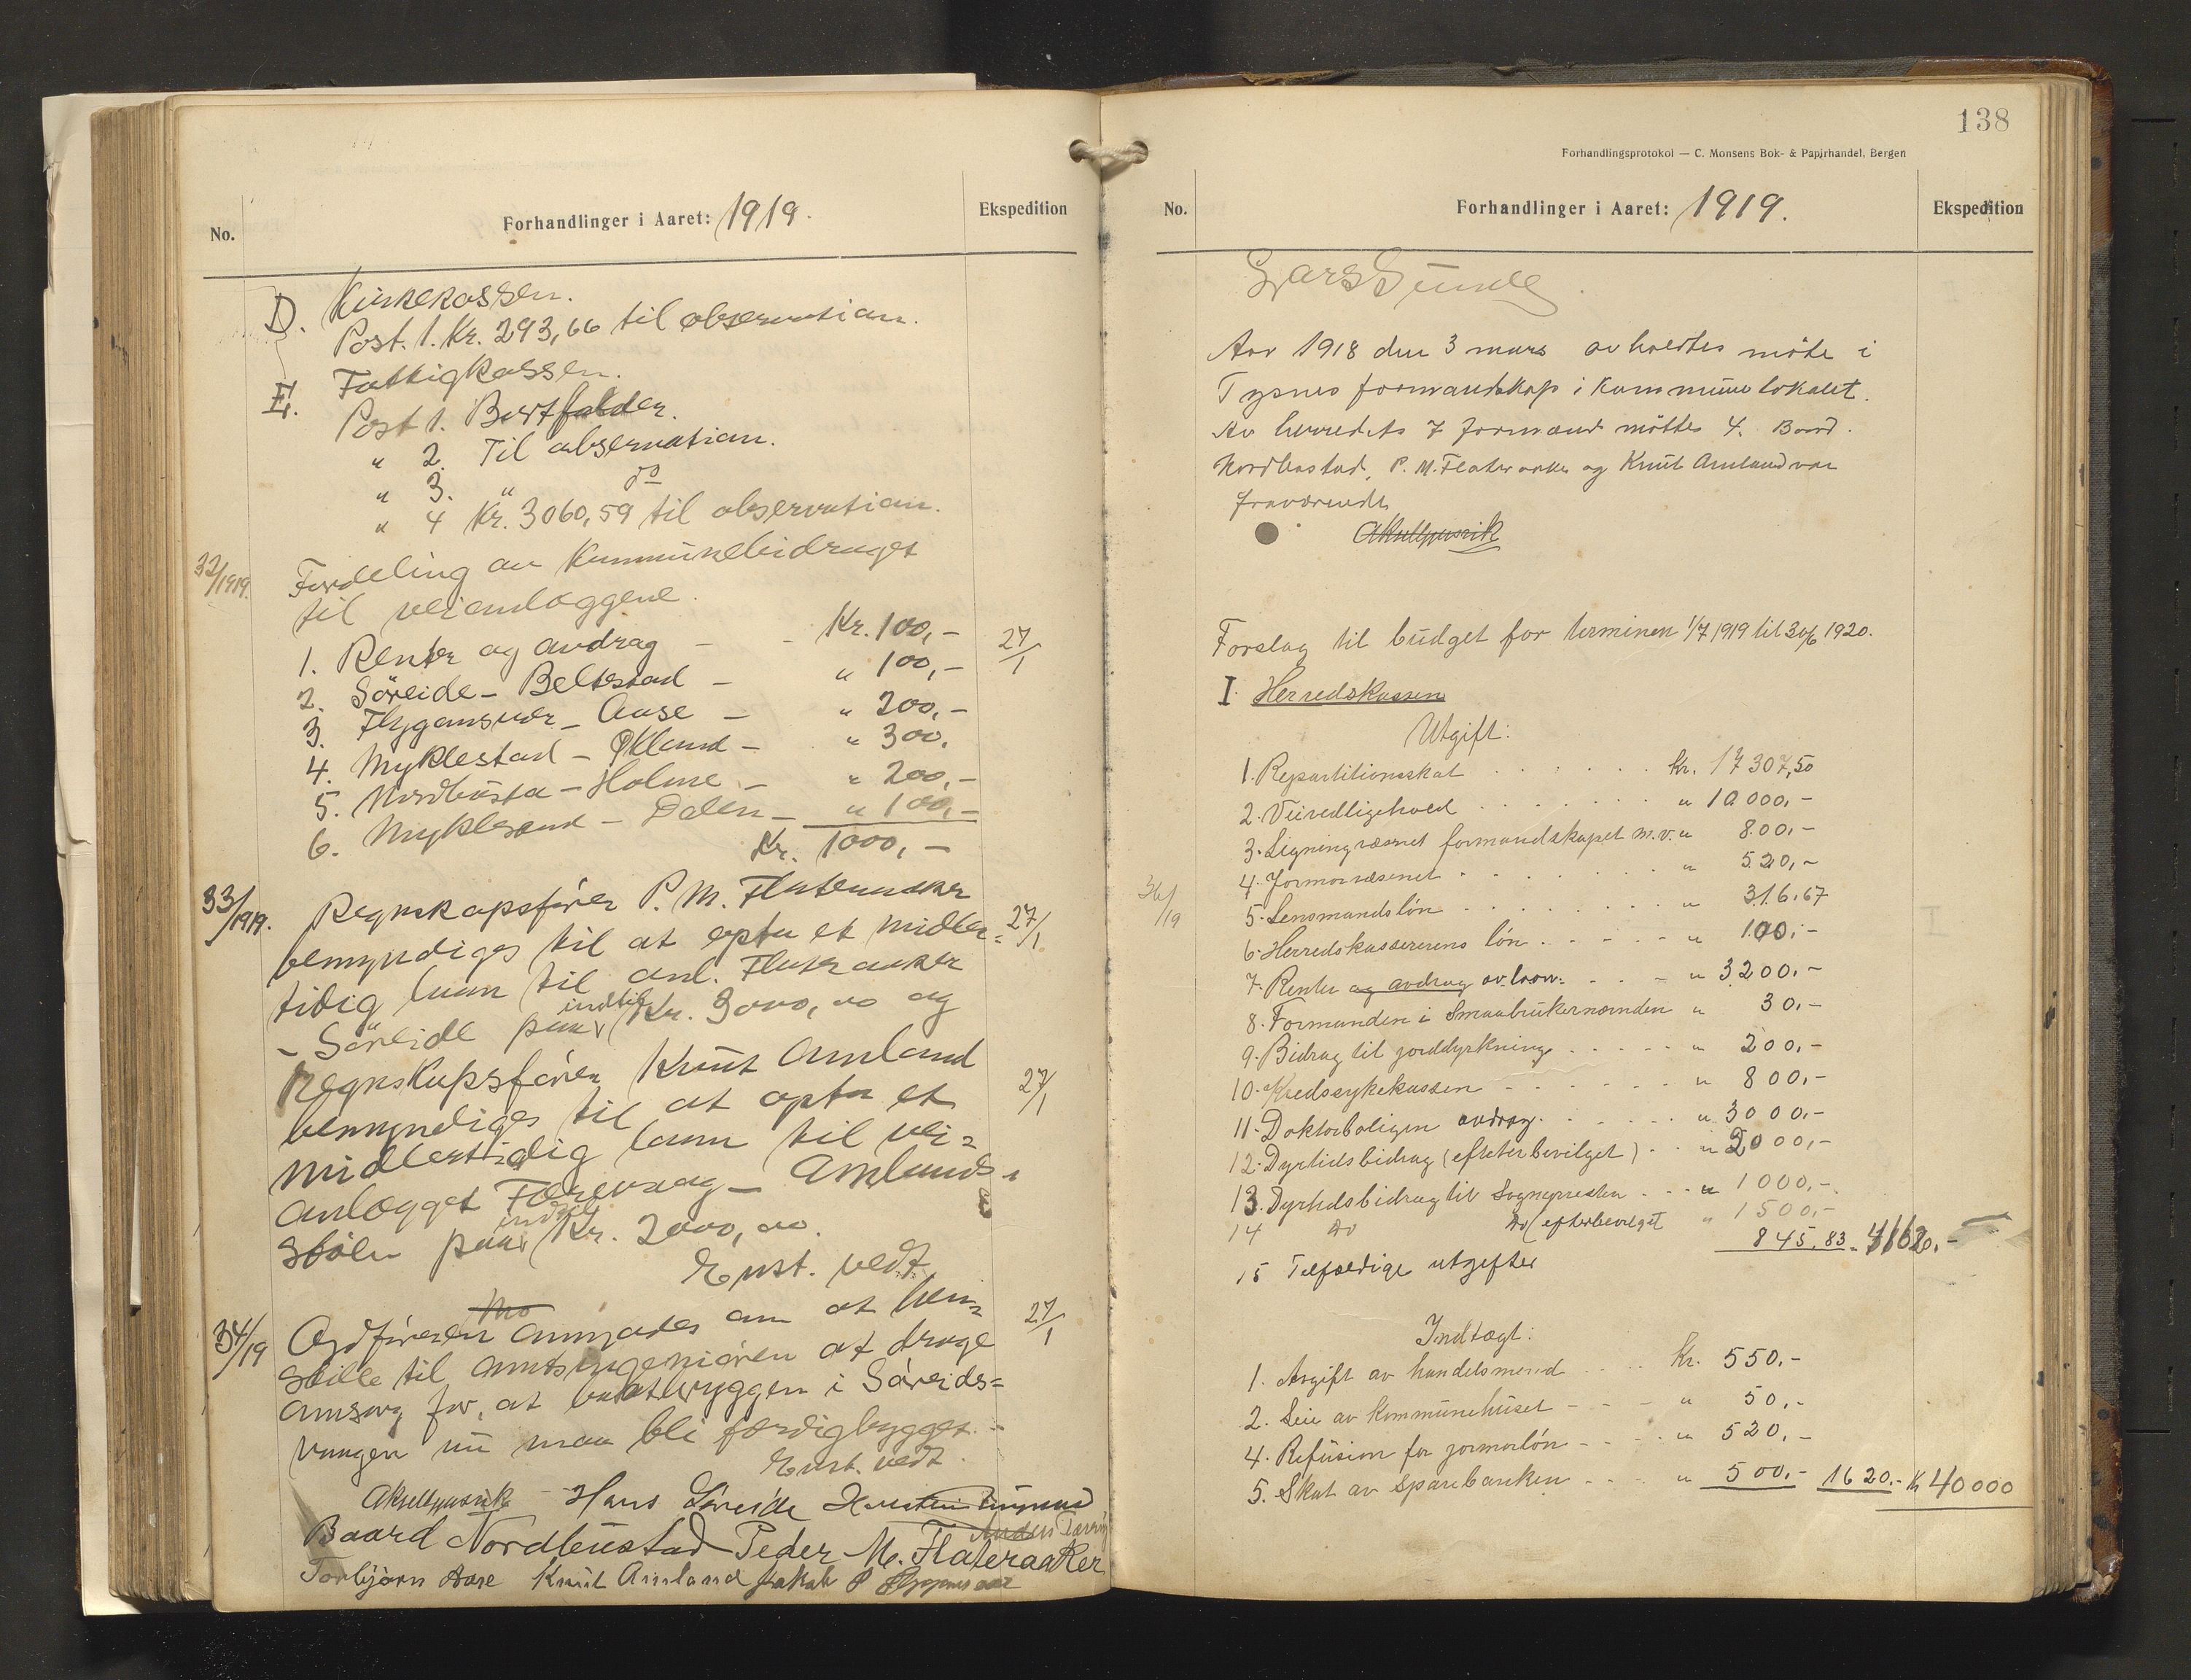 No.
Forhandlinger i Aaret: 1919.
Ekspedition
D. Kirkekassen.
Post. 1. Kr. 293,66 til observation.
E. Fattigkassen.
Post 1. Bortfalder.
" 2. Til observation.
" 3. " do
" 4 Kr. 3060,59 til observation.
32/1919. Fordeling av Kommunebidraget
til veianlæggene.
1. Renter og avdrag - - Kr. 100,- 27/1
2. Søreide - Beltestad - " 100,-
3. Flygansvær - Aase - " 200,-
4. Myklestad - Økland - " 300,
5. Nordbusta - Holme - " 200,-
6. Myklesund - Dalen - " 100,-
Kr. 1000,-
33/1919. Regnskapsfører P. M. Flateraaker
bemyndiges til at opta et midler= 27/1
tidig laan til anl. Flateraaker
- Søreide paa indtil Kr. 3000,00 og
Regnskapsfører Knut Amland
bemyndiges til at opta et 27/1
midlertidig laan til vei=
anlægget - Amlands
Stølen paa indtil Kr. 2000,00.
Enst. vedt.
34/19 Ordføreren anmodes om at hen= 27/1
stille til amtsingeniøren at drage
omsorg for, at baatbryggen i Søreids=
vaagen nu maa bli færdigbygget.-
Enst. vedt.
Hans Søreide
Baard Nordbustad Peder M. Flateraaker
Torbjørn Aase Knut Amland Jakob P
138
Forhandlingsprotokol — C. Monsens Bok- & Papirhandel, Bergen
No.
Forhandlinger i Aaret: 1919.
Ekspedition
Lars Sunde
Aar 1918 den 3 mars avholdtes møte i
Tysnes formandskap i kommunelokalet.
Av herredets 7 formænd møttes 4. Baard
Nordbustad, P. M. Flateraaker og Knut Amland var
fraværende
Forslag til budget for terminen 1/7 1919 til 30/6 1920.
I. Herredskassen
Utgift:
1. Repartitionsskat . . . . . . Kr. 17307,50
2. Veivedligehold . . . . . . " 10000,-
3. Ligningvæsenet formandskapet m.v. " 800,-
4. Jormorvæsenet . . . . . . " 520,-
36/19 5. Lensmandsløn . . . . . . " 316,67
6. Herredskassererens løn . . . . . " 100,-
7. Renter og avdrag av laan. . . - " 3200,-
8. Formanden i Smaabrukernæmnden " 30,-
9. Bidrag til jorddyrkning . . . . " 200,-
10. Kredssykekassen - - - - - " 800,-
11. Doktorboligen avdrag. . . . . " 3000,-
12. Dyrtidsbidrag (efterbevilget) . . " 2000,-
13. Dyrtidsbidrag til Sognepresten . . . " 1000,-
14 Do Do (efterbevilget " 1500,-
15 Tilfældige utgifter 845,83
Indtægt:
1. Avgift av handelsmend . . . Kr. 550,-
2. Leie av kommunehuset - - - " 50,-
4. Refusion for jormorløn - - - " 520,-
5. Skat av sparebanken - - - " 500,- 1620.- K 40000